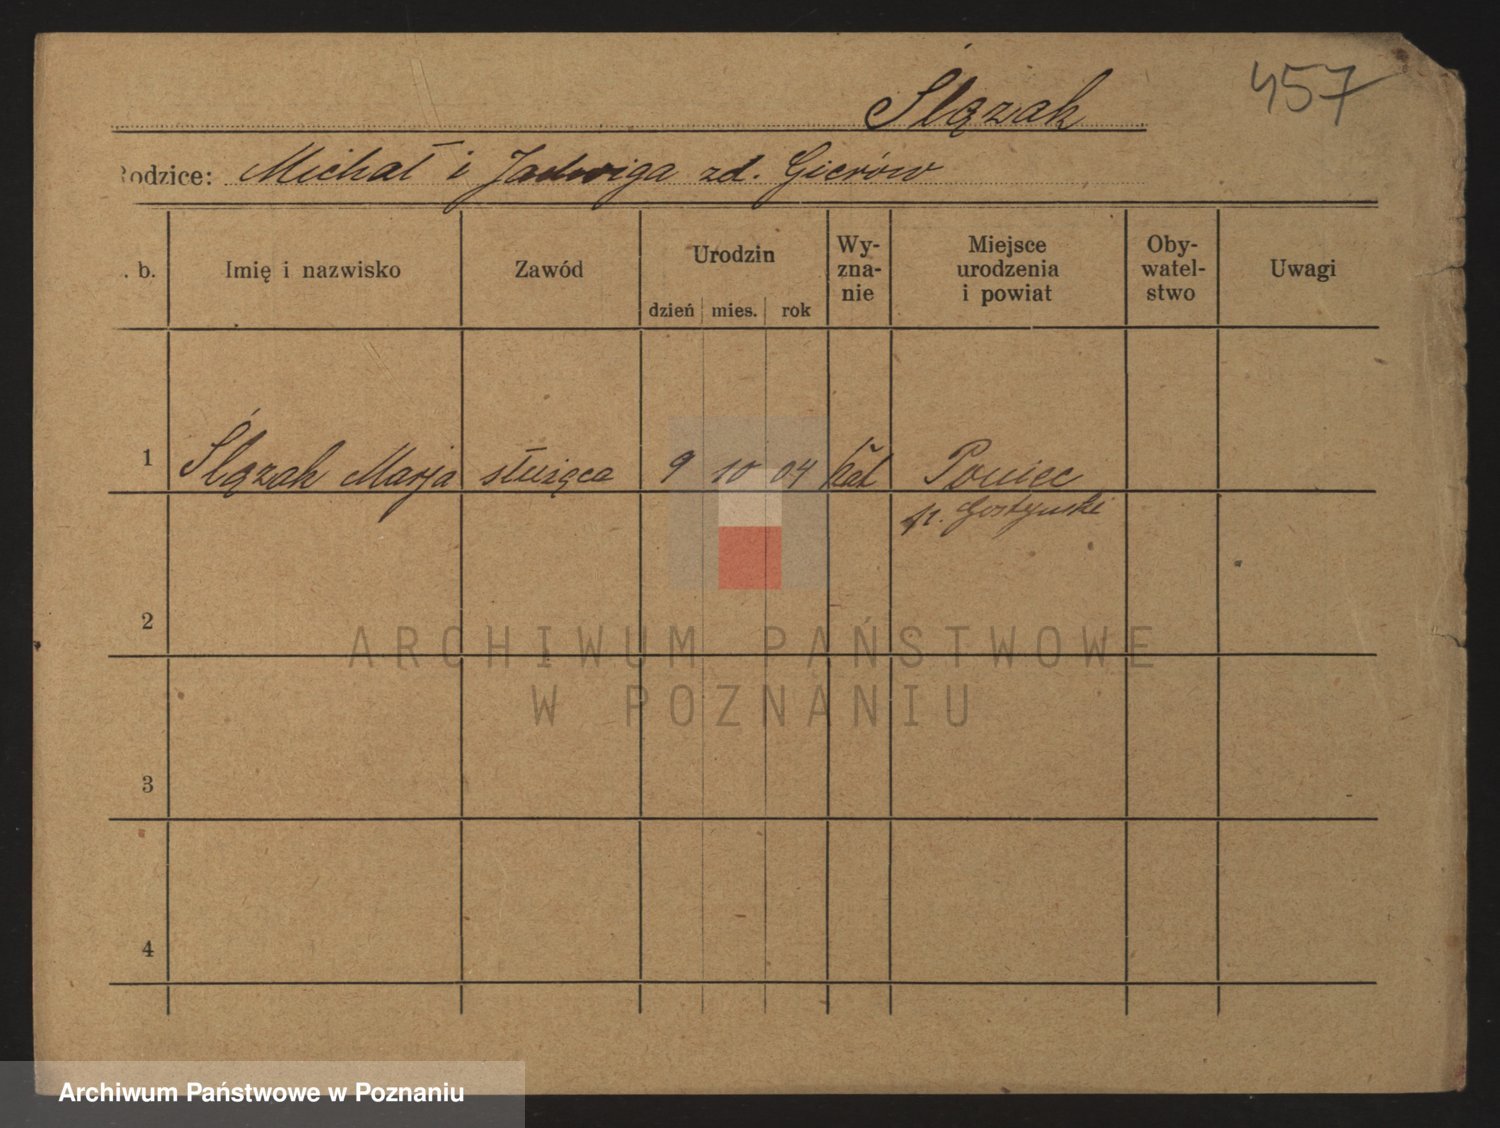 Ślązak
457
Rodzice: Michał i Jadwiga zd. Gierów
. b.
Imię i nazwisko
Zawód
Urodzin
dzień mies. rok
Wy-
zna-
nie
Miejsce
urodzenia
i powiat
Oby-
watel-
stwo
Uwagi
1 Ślązak Marja służąca 9 10 04 kat Poniec
p. Gostyński
2
ARCHIWUM PAŃSTWOWE
W POZNANIU
3
4
Archiwum Państwowe w Poznaniu